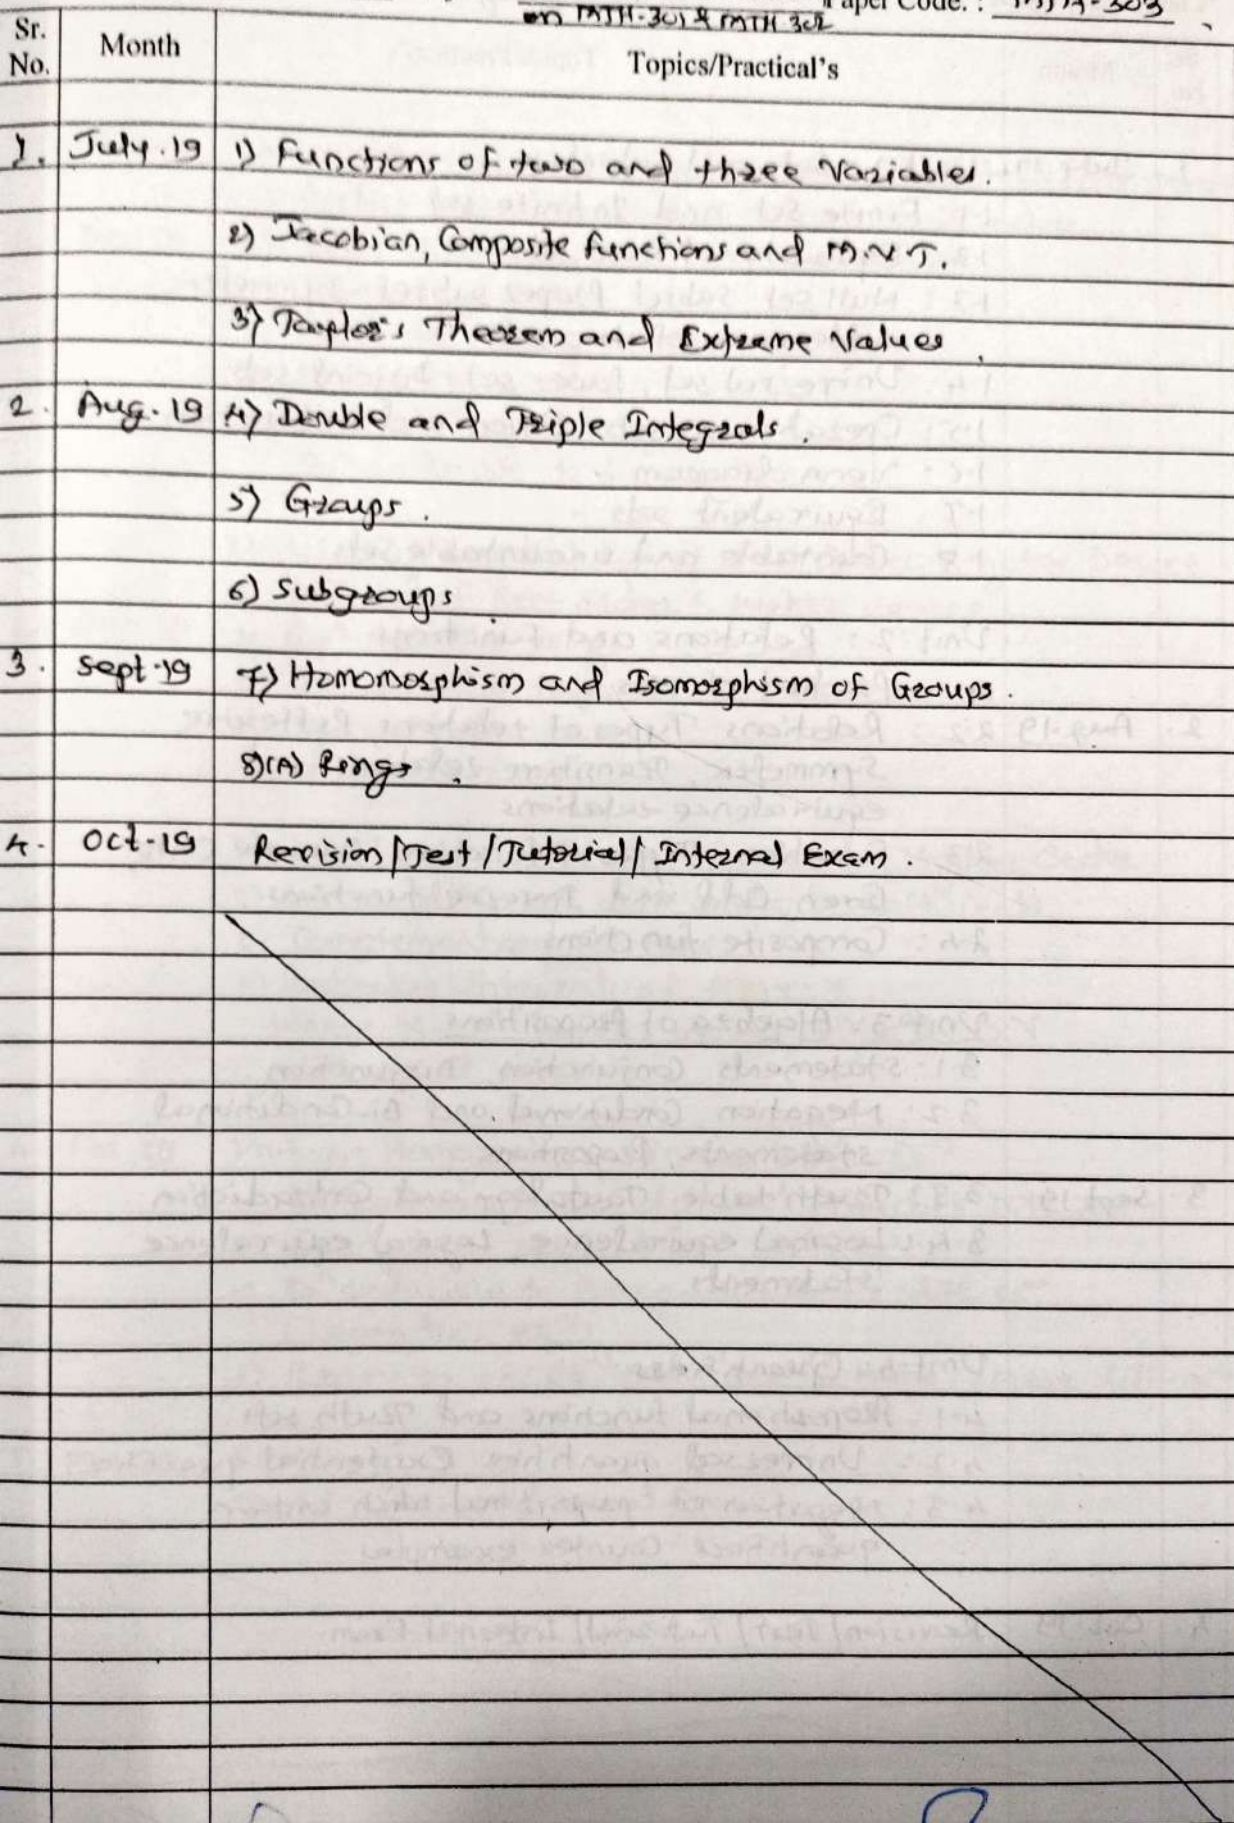 on MATH-301 & MATH 302 Paper Code. : MTH-303
Sr. No. Month Topics/Practical's
1. July.19 1) Functions of two and three Variables.
2) Jacobian, Composite functions and M.V.T.
3) Taylor's Theorem and Extreme Values.
2. Aug.19 4) Double and Triple Integrals.
5) Groups.
6) Subgroups.
3. Sept-19 7) Homomorphism and Isomorphism of Groups.
8)(A) Rings.
4. Oct-19 Revision/Test/Tutorial/Internal Exam.